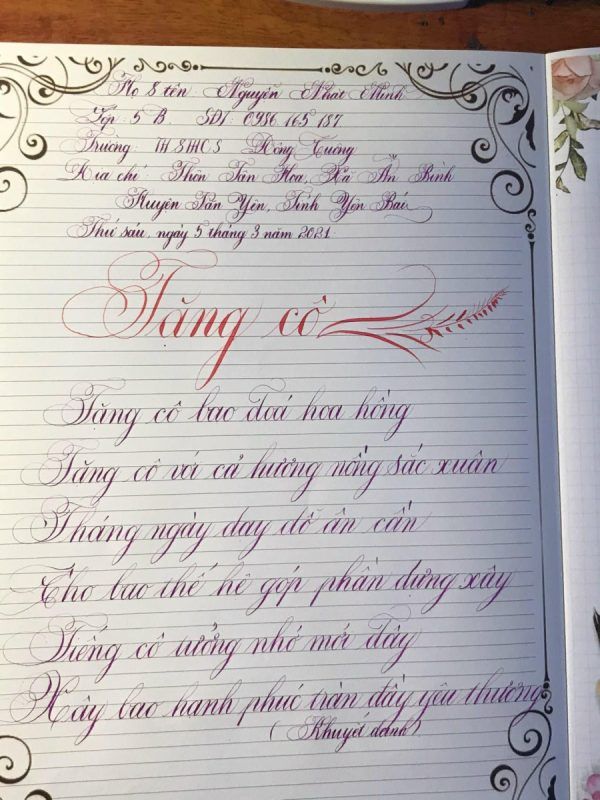 Họ & tên: Nguyễn Nhật Minh
Lớp: 5B. SĐT: 0986 165 187
Trường: TH&THCS Đông Cuông
Địa chỉ: Thôn Tân Hoa, Xã An Bình
Huyện Văn Yên, Tỉnh Yên Bái
Thứ sáu, ngày 5 tháng 3 năm 2021
Tặng cô
Tặng cô bao đoá hoa hồng
Tặng cô với cả hương nồng sắc xuân
Tháng ngày dạy dỗ ân cần
Cho bao thế hệ góp phần dựng xây
Tiếng cô tưởng nhớ mới đây
Xây bao hạnh phúc tràn đầy yêu thương
(Khuyết danh)